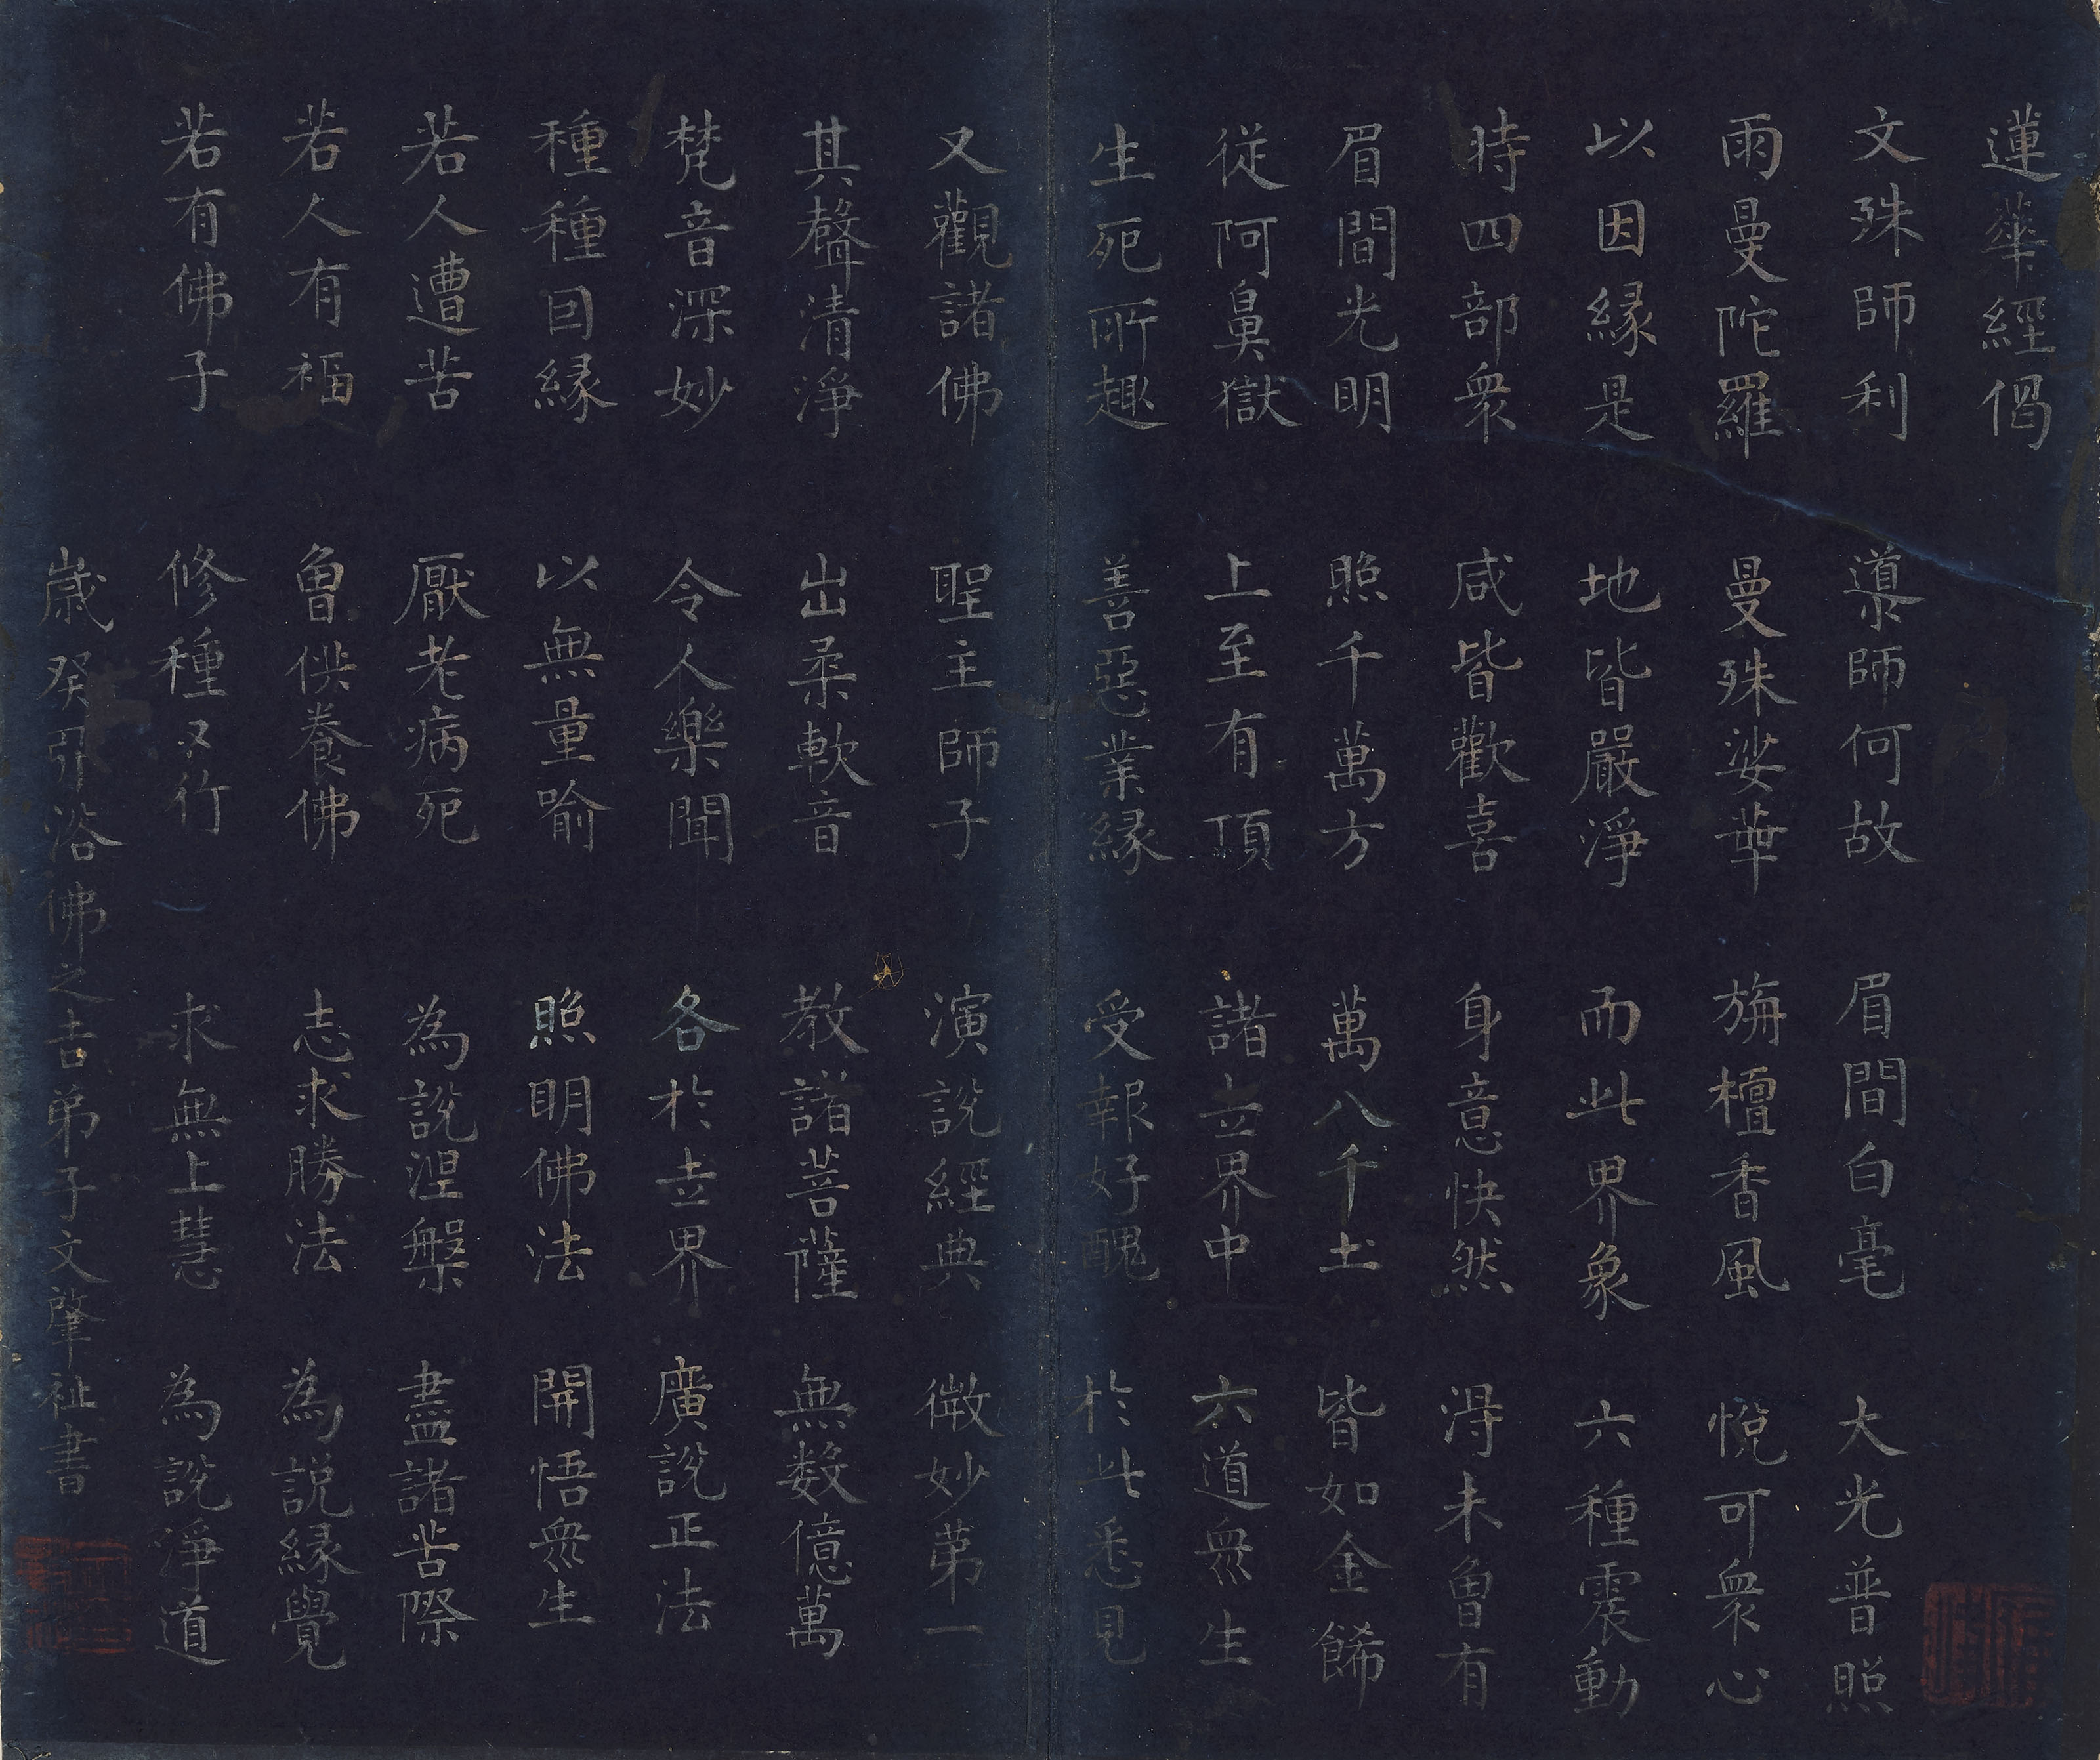 蓮華經偈
文殊師利 導師何故 眉間白毫 大光普照
雨曼陀羅 曼殊娑華 旃檀香風 悅可衆心
以因緣是 地皆嚴淨 而此界象 六種震動
時四部衆 咸皆歡喜 身意快然 得未曾有
眉間光明 照千萬方 萬八千土 皆如金餙
從阿鼻獄 上至有頂 諸世界中 六道衆生
生死所趣 善惡業緣 受報好醜 於此悉見
又觀諸佛 聖主師子 演說經典 微妙第一
其聲清淨 出柔軟音 教諸菩薩 無數億萬
梵音深妙 令人樂聞 各於世界 廣說正法
種種因緣 以無量喻 照明佛法 開悟衆生
若人遭苦 厭老病死 為說涅槃 盡諸苦際
若人有福 曾供養佛 志求勝法 為說緣覺
若有佛子 修種又行 求無上慧 為說淨道
歲癸丑浴佛之吉弟子文肇祉書